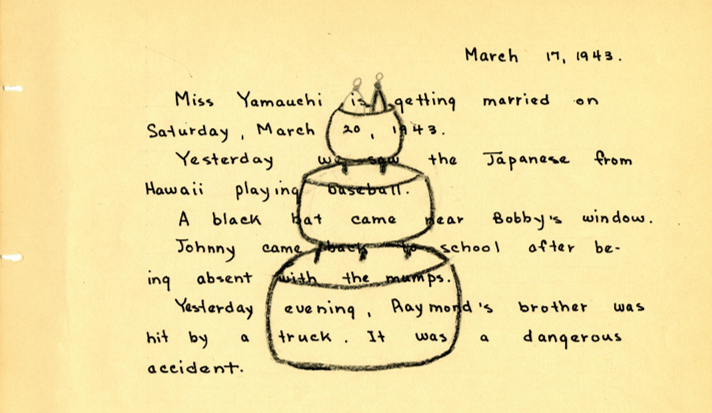 March 17, 1943.
Miss Yamauchi is getting married on
Saturday, March 20, 1943.
Yesterday we saw the Japanese from
Hawaii playing baseball.
A black bat came near Bobby's window.
Johnny came back to school after be-
ing absent with the mumps.
Yesterday evening, Raymond's brother was
hit by a truck. It was a dangerous
accident.